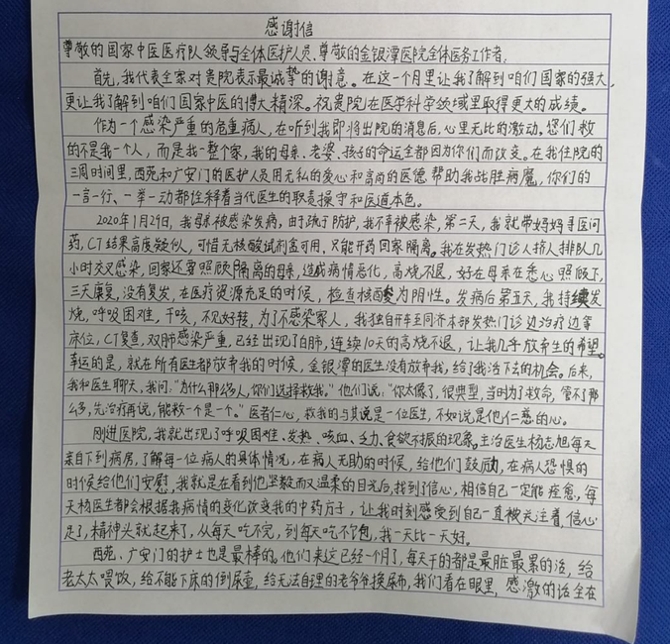 感谢信
尊敬的国家中医医疗队领导与全体医护人员、尊敬的金银潭医院全体医务工作者,
首先,我代表全家对贵院表示最诚挚的谢意。在这一个月里让我了解到咱们国家的强大,
更让我了解到咱们国家中医的博大精深。祝贵院在医学科学领域里取得更大的成绩。
作为一个感染严重的危重病人,在听到我即将出院的消息后,心里无比的激动。您们救
的不是我一个人,而是我一整个家,我的母亲、老婆、孩子的命运全都因为你们而改变。在我住院的
三周时间里,西苑和广安门的医护人员用无私的爱心和高尚的医德帮助我战胜病魔,你们的
一言一行、一举一动都诠释着当代医生的职责操守和医道本色。
2020年1月29日,我母亲被感染发病,由于疏于防护,我不幸被感染,第二天,我就带妈妈寻医问
药,CT结果高度疑似,可惜无核酸试剂盒可用,只能开药回家隔离。我在发热门诊人挤人排队几
小时交叉感染,回家还要照顾隔离的母亲,造成病情恶化,高烧不退,好在母亲在悉心照顾下,
三天康复,没有复发,在医疗资源充足的时候,检查核酸为阴性。发病后第五天,我持续发
烧,呼吸困难,干咳,不见好转,为了不感染家人,我独自开车至同济本部发热门诊边治疗边等
床位,CT复查,双肺感染严重,已经出现了白肺,连续10天的高烧不退,让我几乎放弃生的希望。
幸运的是,就在所有医生都放弃我的时候,金银潭的医生没有放弃我,给了我活下去的机会。后来,
我和医生聊天,我问:“为什么那么多人,你们选择救我。”他们说:“你太像了,很典型,当时为了救命,管不了那
么多,先治疗再说,能救一个是一个。”医者仁心,救我的与其说是一位医生,不如说是他仁慈的心。
刚进医院,我就出现了呼吸困难、发热、咳血、乏力、食欲不振的现象。主治医生杨志旭每天
亲自下到病房,了解每一位病人的具体情况,在病人无助的时候,给他们鼓励,在病人恐惧的
时候给他们安慰,我就是在看到他坚毅而又温柔的目光后,找到了信心,相信自己一定能痊愈,每
天杨医生都会根据我病情的变化改变我的中药方子,让我时刻感受到自己一直被关注着,信心
足了,精神头就起来了,从每天吃不完,到每天吃不饱,我一天比一天好。
西苑、广安门的护士也是最棒的。他们来这已经一个月了,每天干的都是最脏最累的活,给
老太太喂饭,给不能下床的倒尿壶,给无法自理的老爷爷接尿布,我们看在眼里,感激的话全在